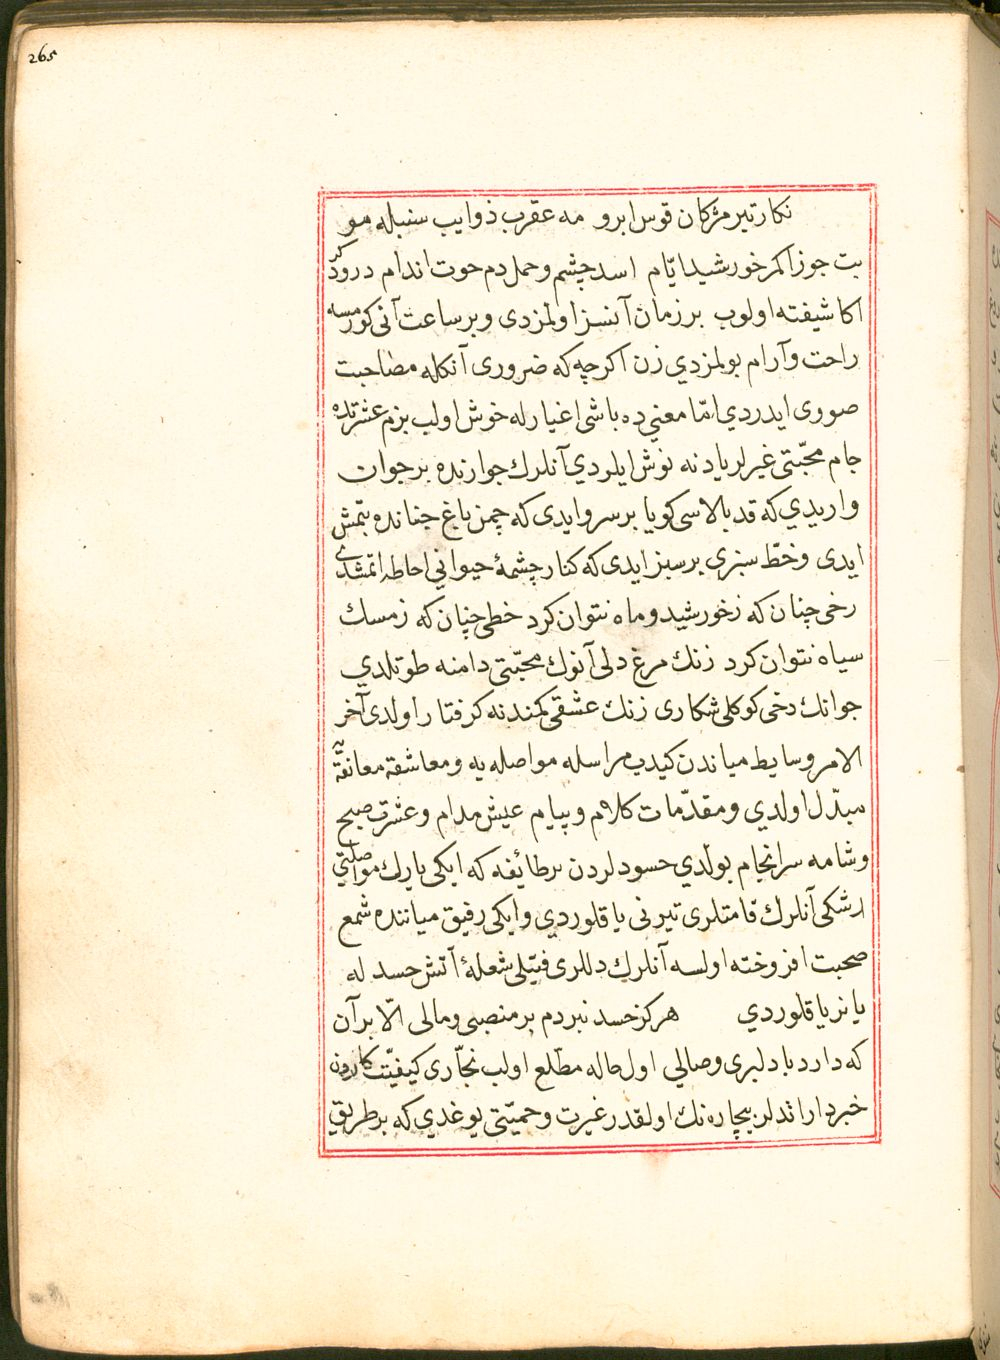 265
نكار تير مژكان قوس ابرو مه عقرب ذوايب سنبله مو
بت جوزا كمر خورشيد ايّام اسد چشم و حمل دم حوت اندام درودكر
اكا شيفته اولوب بر زمان آنسز اولمزدى و بر ساعت آنى كورمسه
راحت و آرام بولمزدي زن اكرچه كه ضرورى آنكله مصاحبت
صورى ايدردي امّا معني ده باشى اغيارله خوش اولب بزم عشرتده
جام محبّتى غيرلر يادنه نوش ايلردي آنلرك جوارنده بر جوان
واريدي كه قد بالاسى كويا بر سرو ايدى كه چمن باغ جنانده بتمش
ايدى و خطّ سبزى بر سبز ايدى كه كنار چشمهٔ حيواني احاطه اتمشدى
رخى چنان كه زخورشيد و ماه نتوان كرد خطى چنان كه زمسك
سياه نتوان كرد زنك مرغ دلى آنوك محبّتى دامنه طوتلدي
جوانك دخى كوكلى شكارى زنك عشقى كمندنه كرفتار اولدى آخر
الامر وسايط مياندن كيدب مراسله مواصله يه و معاشقة معانقه يه
مبدّل اولدي و مقدّمات كلام و پيام عيش مدام و عشرت صبح
و شامه سرانجام بولدي حسودلردن بر طائيفه كه ايكى يارك مواصلتي
رشكى آنلرك قامتلرى تيرنى يا قلوردي و ايكى رفيق مياننده شمع
صحبت افروخته اولسه آنلرك دللرى فتيلى شعلهٔ آتش حسد له
يانر يا قلوردي هركز حسد نبردم بر منصبى و مالى الّا بر آن
كه دارد با دلبرى وصالي اول حاله مطّلع اولب نجّارى كيفيّت كاردن
خبردار اتدلر بيچاره نك اولقدر غيرت و حميّتى يوغدي كه بر طريق